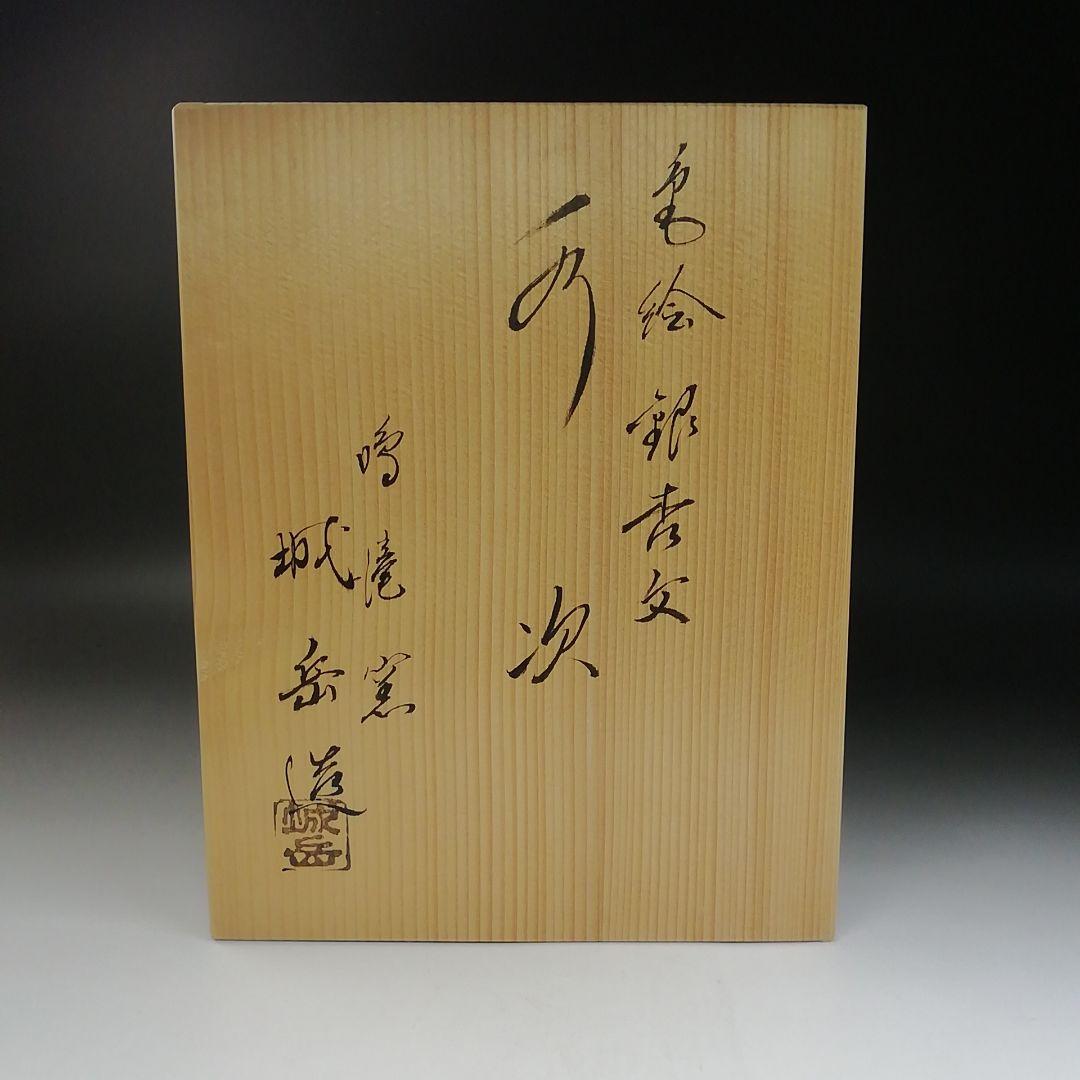 色絵 銀杏文
水次
鳴滝窯
城岳造
城岳